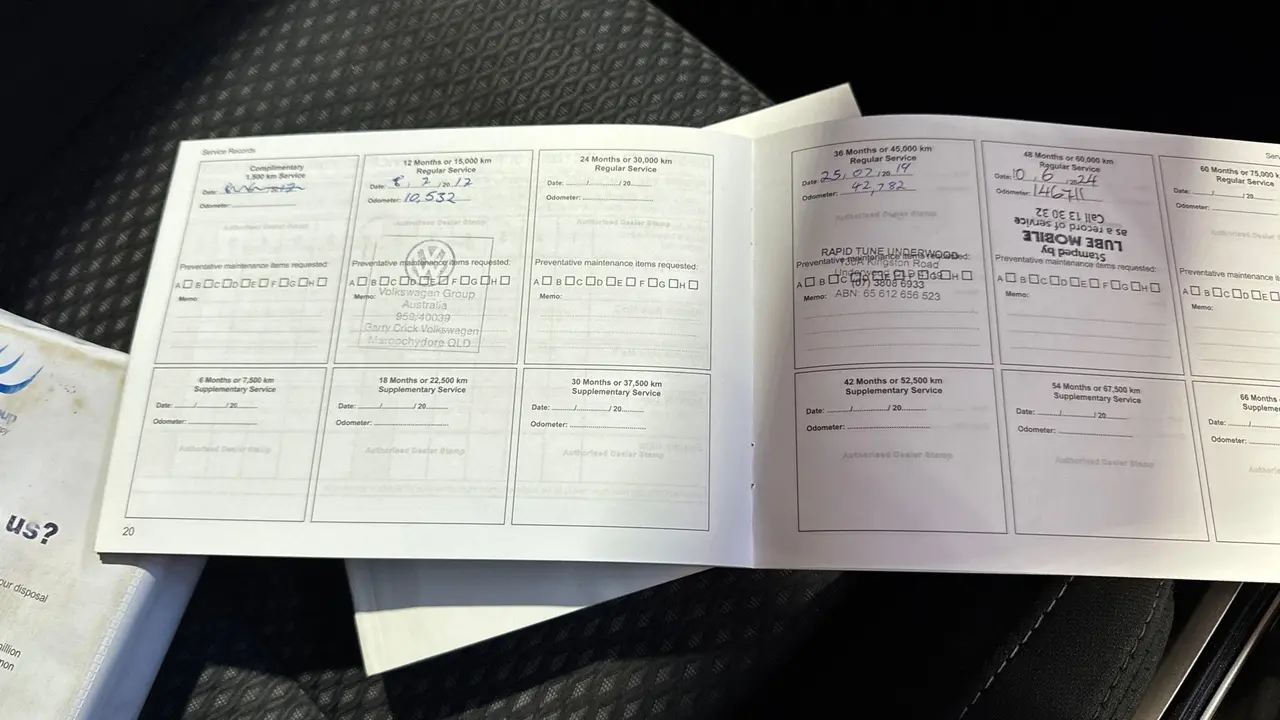 Service Records
Complimentary
1,500 km Service
Date:
Odometer:
Authorised Dealer Stamp
Preventative maintenance items requested:
A B C D E F G H
Memo:
12 Months or 15,000 km
Regular Service
Date: 8 / 2 / 2012
Odometer: 10,532
Preventative maintenance items requested:
A B C D E F G H
Memo:
Volkswagen Group
Australia
959/40039
Garry Crick Volkswagen
Maroochydore QLD
24 Months or 30,000 km
Regular Service
Date: ......../......../ 20......
Odometer:
Authorised Dealer Stamp
Preventative maintenance items requested:
A B C D E F G H
Memo:
6 Months or 7,500 km
Supplementary Service
Date: ......../......../ 20......
Odometer:
Authorised Dealer Stamp
18 Months or 22,500 km
Supplementary Service
Date: ......../......../ 20......
Odometer:
Authorised Dealer Stamp
30 Months or 37,500 km
Supplementary Service
Date: ......../......../ 20......
Odometer:
Authorised Dealer Stamp
20
36 Months or 45,000 km
Regular Service
Date: 25, 07 / 2019
Odometer: 42,782
Authorised Dealer Stamp
RAPID TUNE UNDERWOOD
Kingston Road
Preventative maintenance items requested:
A B C D E F G H
(07) 3808 6933
Memo:
ABN: 65 612 656 523
48 Months or 60,000 km
Regular Service
Date: 10 , 6 , 2024
Odometer: 146711
Stamped by
LUBE MOBILE
as a record of service
Call 13 30 32
Preventative maintenance items requested:
A B C D E F G H
Memo:
60 Months or 75,000 k
Regular Service
Date: ......../......../ 20......
Odometer:
Preventative maintenance
A B C D E
Memo:
42 Months or 52,500 km
Supplementary Service
Date: ......../......../ 20......
Odometer:
Authorised Dealer Stamp
54 Months or 67,500 km
Supplementary Service
Date: ......../......../ 20......
Odometer:
Authorised Dealer Stamp
66 Months
Supplem
Date:
Odometer:
us?
our disposal
million